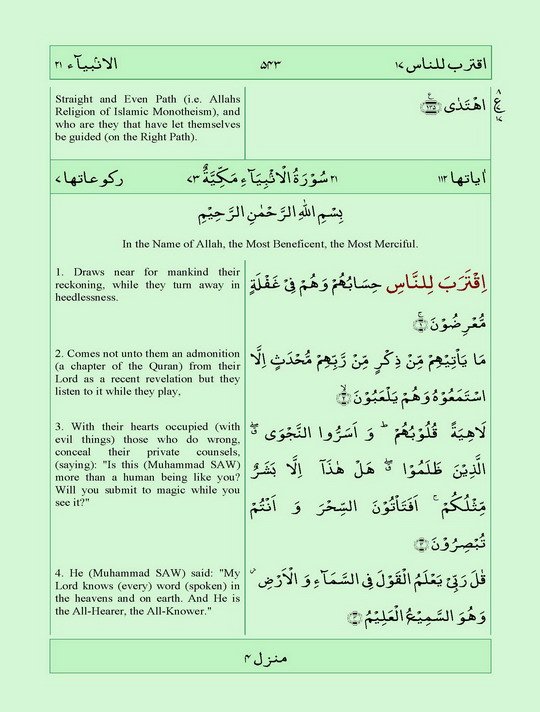 اقترب للناس ۱۷ ۵۴۳ الانۢبيآء ۲۱
Straight and Even Path (i.e. Allahs
Religion of Islamic Monotheism), and
who are they that have let themselves
be guided (on the Right Path).
اهْتَدٰى ۝۱۳۵
ع ۸ ۱۷
اٰياتها ۱۱۲ ۲۱ سُوْرَةُ الْاَنْۢبِيَآءِ مَكِّيَّةٌ ۷۳ ركوعاتها ۷
بِسْمِ اللّٰهِ الرَّحْمٰنِ الرَّحِيْمِ
In the Name of Allah, the Most Beneficent, the Most Merciful.
1. Draws near for mankind their
reckoning, while they turn away in
heedlessness.
اِقْتَرَبَ لِلنَّاسِ حِسَابُهُمْ وَهُمْ فِىْ غَفْلَةٍ
مُّعْرِضُوْنَ ۝۱
2. Comes not unto them an admonition
(a chapter of the Quran) from their
Lord as a recent revelation but they
listen to it while they play,
مَا يَاْتِيْهِمْ مِّنْ ذِكْرٍ مِّنْ رَّبِّهِمْ مُّحْدَثٍ اِلَّا
اسْتَمَعُوْهُ وَهُمْ يَلْعَبُوْنَ ۝۲
3. With their hearts occupied (with
evil things) those who do wrong,
conceal their private counsels,
(saying): "Is this (Muhammad SAW)
more than a human being like you?
Will you submit to magic while you
see it?"
لَاهِيَةً قُلُوْبُهُمْ ؕ وَ اَسَرُّوا النَّجْوَى ۖ
الَّذِيْنَ ظَلَمُوْا ۖ هَلْ هٰذَاۤ اِلَّا بَشَرٌ
مِّثْلُكُمْ ۚ اَفَتَاْتُوْنَ السِّحْرَ وَ اَنْتُمْ
تُبْصِرُوْنَ ۝۳
4. He (Muhammad SAW) said: "My
Lord knows (every) word (spoken) in
the heavens and on earth. And He is
the All-Hearer, the All-Knower."
قٰلَ رَبِّىْ يَعْلَمُ الْقَوْلَ فِى السَّمَآءِ وَ الْاَرْضِ ؗ
وَهُوَ السَّمِيْعُ الْعَلِيْمُ ۝۴
منزل ۴